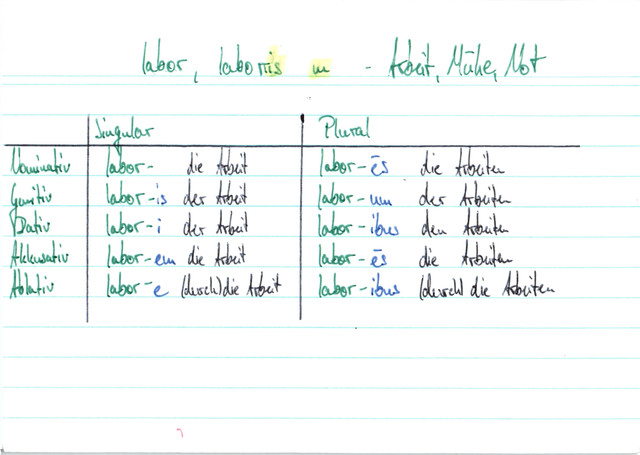 labor, laboris m - Arbeit, Mühe, Not
Singular Plural
Nominativ labor- die Arbeit labor-ēs die Arbeiten
Genitiv labor-is der Arbeit labor-um der Arbeiten
Dativ labor-i der Arbeit labor-ibus den Arbeiten
Akkusativ labor-em die Arbeit labor-ēs die Arbeiten
Ablativ labor-e (durch) die Arbeit labor-ibus (durch) die Arbeiten